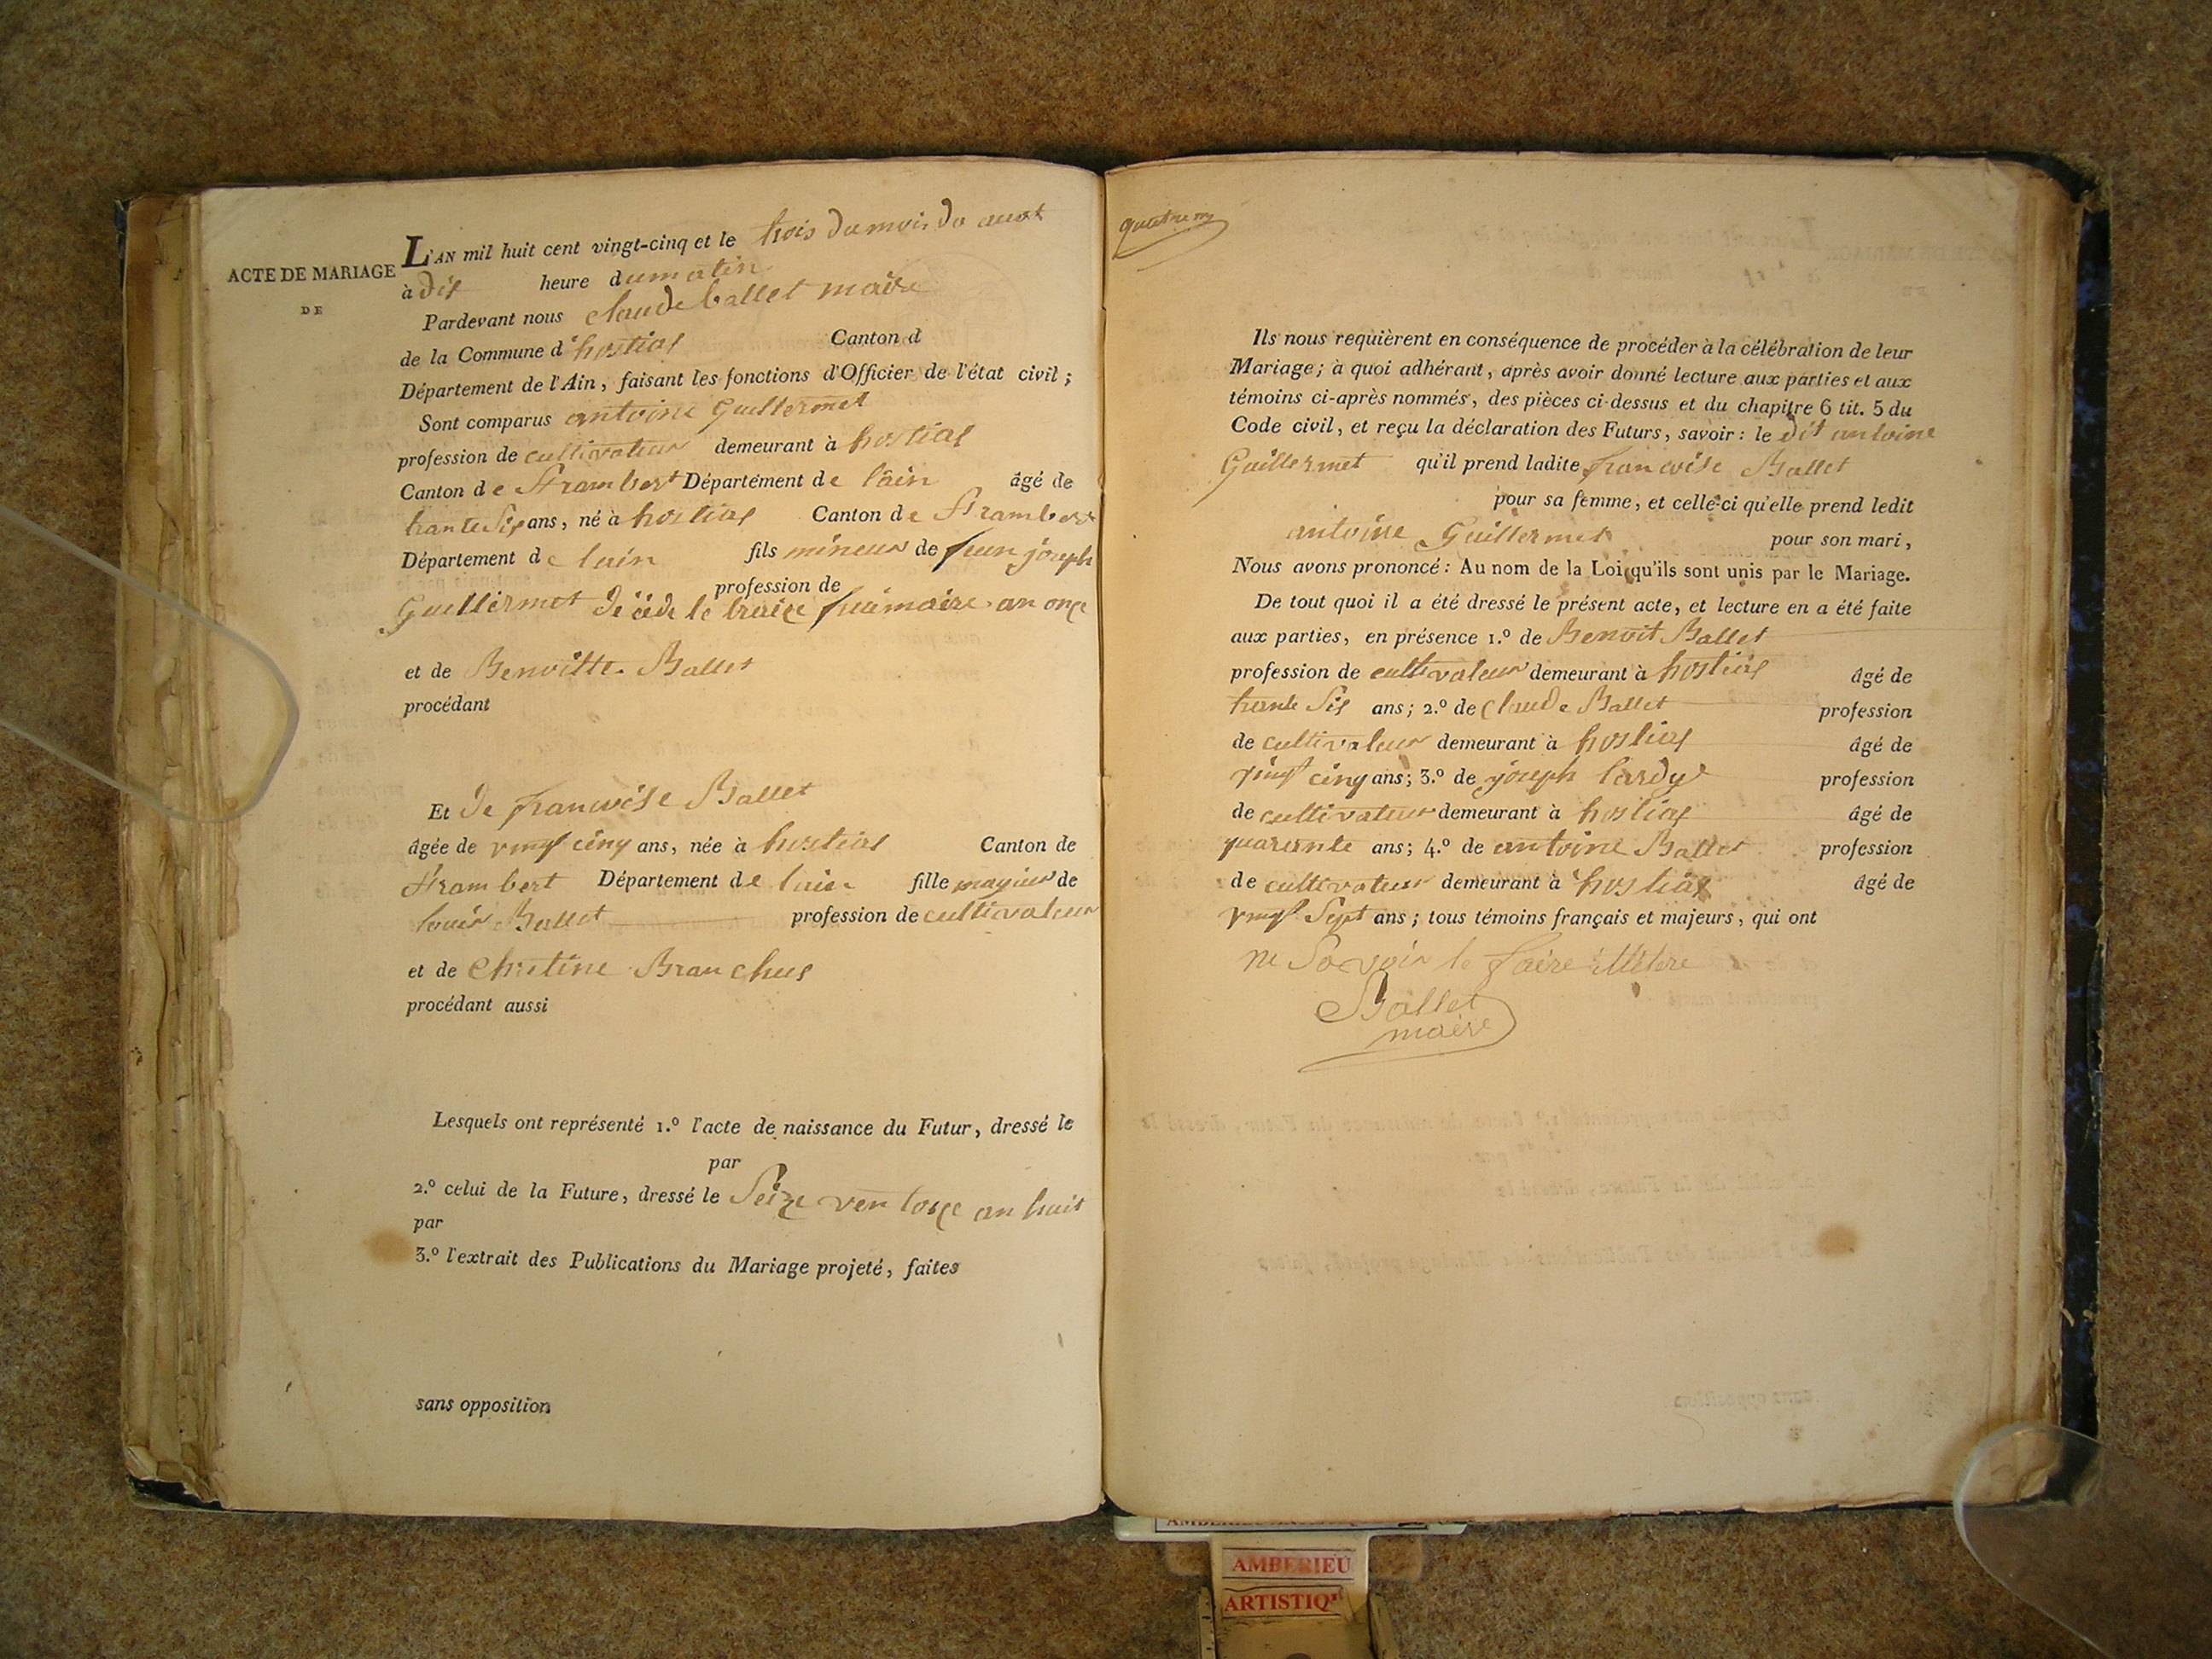 ACTE DE MARIAGE
DE
L'AN mil huit cent vingt-cinq et le trois du mois do auot
à dix heure dumatin
Pardevant nous claude ballet maire
de la Commune d'hostias Canton d
Département de l'Ain, faisant les fonctions d'Officier de l'état civil;
Sont comparus antoine Guillermet
profession de cultivateur demeurant à hostias
Canton de St rambert Département de lain âgé de
trante Six ans, né à hostias Canton de St rambert
Département de lain fils mineur de feu joseph
profession de
Guillermet décédé le traize frimaire an onze
et de Benoitte Ballet
procédant
Et de francoise Ballet
âgée de vingt cinq ans, née à hostias Canton de
St rambert Département de lain fille majeur de
louis Ballet profession de cultivateur
et de Christine Branchus
procédant aussi
Lesquels ont représenté 1.º l'acte de naissance du Futur, dressé le
par
2.º celui de la Future, dressé le Seize ventose an huit
par
3.º l'extrait des Publications du Mariage projeté, faites
sans opposition
Ils nous requièrent en conséquence de procéder à la célébration de leur
Mariage; à quoi adhérant, après avoir donné lecture aux parties et aux
témoins ci-après nommés, des pièces ci-dessus et du chapitre 6 tit. 5 du
Code civil, et reçu la déclaration des Futurs, savoir: le dit antoine
Guillermet qu'il prend ladite francoise Ballet
pour sa femme, et celle-ci qu'elle prend ledit
antoine Guillermet pour son mari,
Nous avons prononcé: Au nom de la Loi qu'ils sont unis par le Mariage.
De tout quoi il a été dressé le présent acte, et lecture en a été faite
aux parties, en présence 1.º de Benoit Ballet
profession de cultivateur demeurant à hostias âgé de
trante Six ans; 2.º de Claude Ballet profession
de cultivateur demeurant à hostias âgé de
vingt cinq ans; 3.º de joseph lardy profession
de cultivateur demeurant à hostias âgé de
quarante ans; 4.º de antoine Ballet profession
de cultivateur demeurant à hostias âgé de
vingt Sept ans; tous témoins français et majeurs, qui ont
ne Savoir le faire illétere
Ballet
maire
AMBERIEU
ARTISTIQ